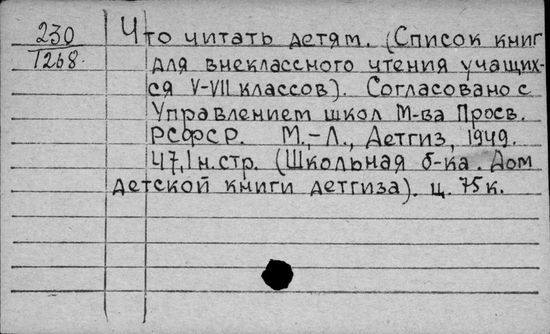 230 Что читать детям. (Список книг
1268. для внеклассного чтения учащих-
ся V-VII классов). Согласовано с
Управлением школ М-ва Просв.
РСФСР. М.,-Л., Детгиз, 1949.
47,1 н.стр. (Школьная б-ка. Дом
детской книги детгиза). ц. 75 к.